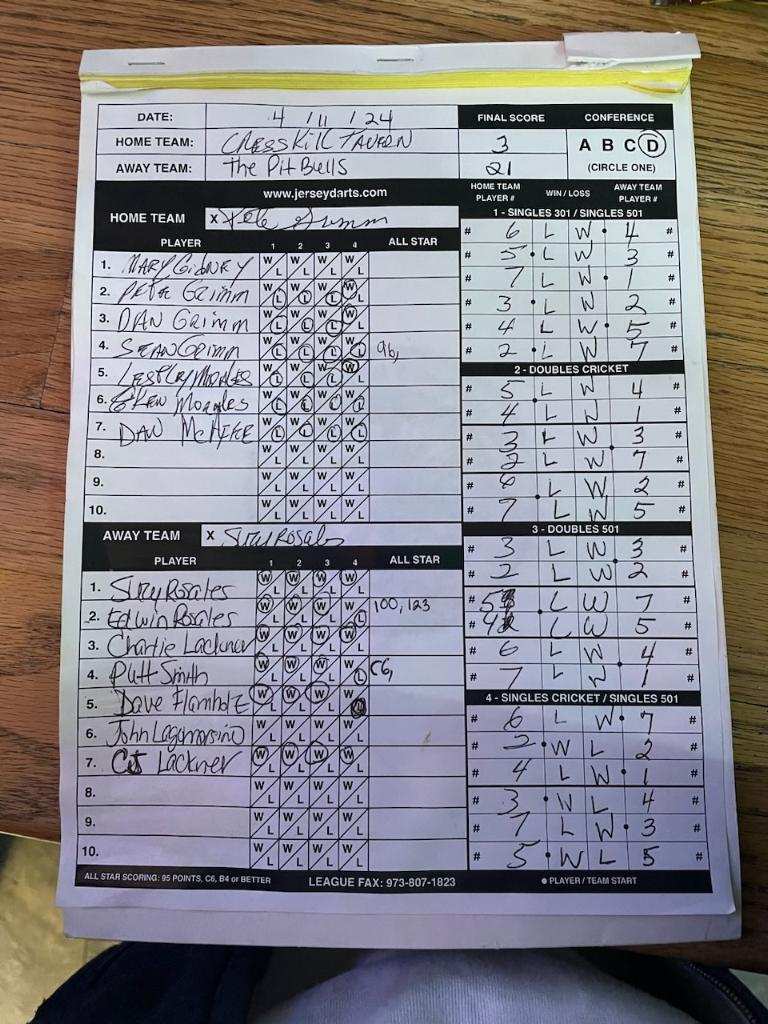 DATE: 4 / 11 / 24 FINAL SCORE CONFERENCE
HOME TEAM: Cresskill Tavern 3 A B C D
AWAY TEAM: The Pit Bulls 21 (CIRCLE ONE)
www.jerseydarts.com HOME TEAM PLAYER # WIN / LOSS AWAY TEAM PLAYER #
HOME TEAM X Pete Grimm
PLAYER 1 2 3 4 ALL STAR
1. MARY GIDNEY W L W L W L W L
2. PETE GRIMM W L W L W L W L
3. DAN GRIMM W L W L W L W L
4. SEAN GRIMM W L W L W L W L 96,
5. LESLEY MORALES W L W L W L W L
6. Morales W L W L W L W L
7. DAN W L W L W L W L
8. W L W L W L W L
9. W L W L W L W L
10. W L W L W L W L
AWAY TEAM X Suzy Rosales
PLAYER 1 2 3 4 ALL STAR
1. Suzy Rosales W L W L W L W L
2. Edwin Rosales W L W L W L W L 100, 123
3. Charlie Lackner W L W L W L W L
4. Patt Smith W L W L W L W L C6,
5. Dave Flamholtz W L W L W L W L
6. John Lagomarsino W L W L W L W L
7. CJ Lackner W L W L W L W L
8. W L W L W L W L
9. W L W L W L W L
10. W L W L W L W L
1 - SINGLES 301 / SINGLES 501
# 6 L W • 4 #
# 5 • L W 3 #
# 7 L W • 1 #
# 3 • L W 2 #
# 4 L W • 5 #
# 2 • L W 7 #
2 - DOUBLES CRICKET
# 5 L W 4 #
# 4 L W 1 #
# 3 L W 3 #
# 2 L W 7 #
# 6 L W 2 #
# 7 L W 5 #
3 - DOUBLES 501
# 3 L W 3 #
# 2 L W 2 #
# 5 L W 7 #
# 4 L W 5 #
# 6 L W 4 #
# 7 L W 1 #
4 - SINGLES CRICKET / SINGLES 501
# 6 L W • 7 #
# 2 • W L 2 #
# 4 L W • 1 #
# 3 • W L 4 #
# 7 L W • 3 #
# 5 • W L 5 #
ALL STAR SCORING: 95 POINTS, C6, B4 or BETTER LEAGUE FAX: 973-807-1823 • PLAYER / TEAM START